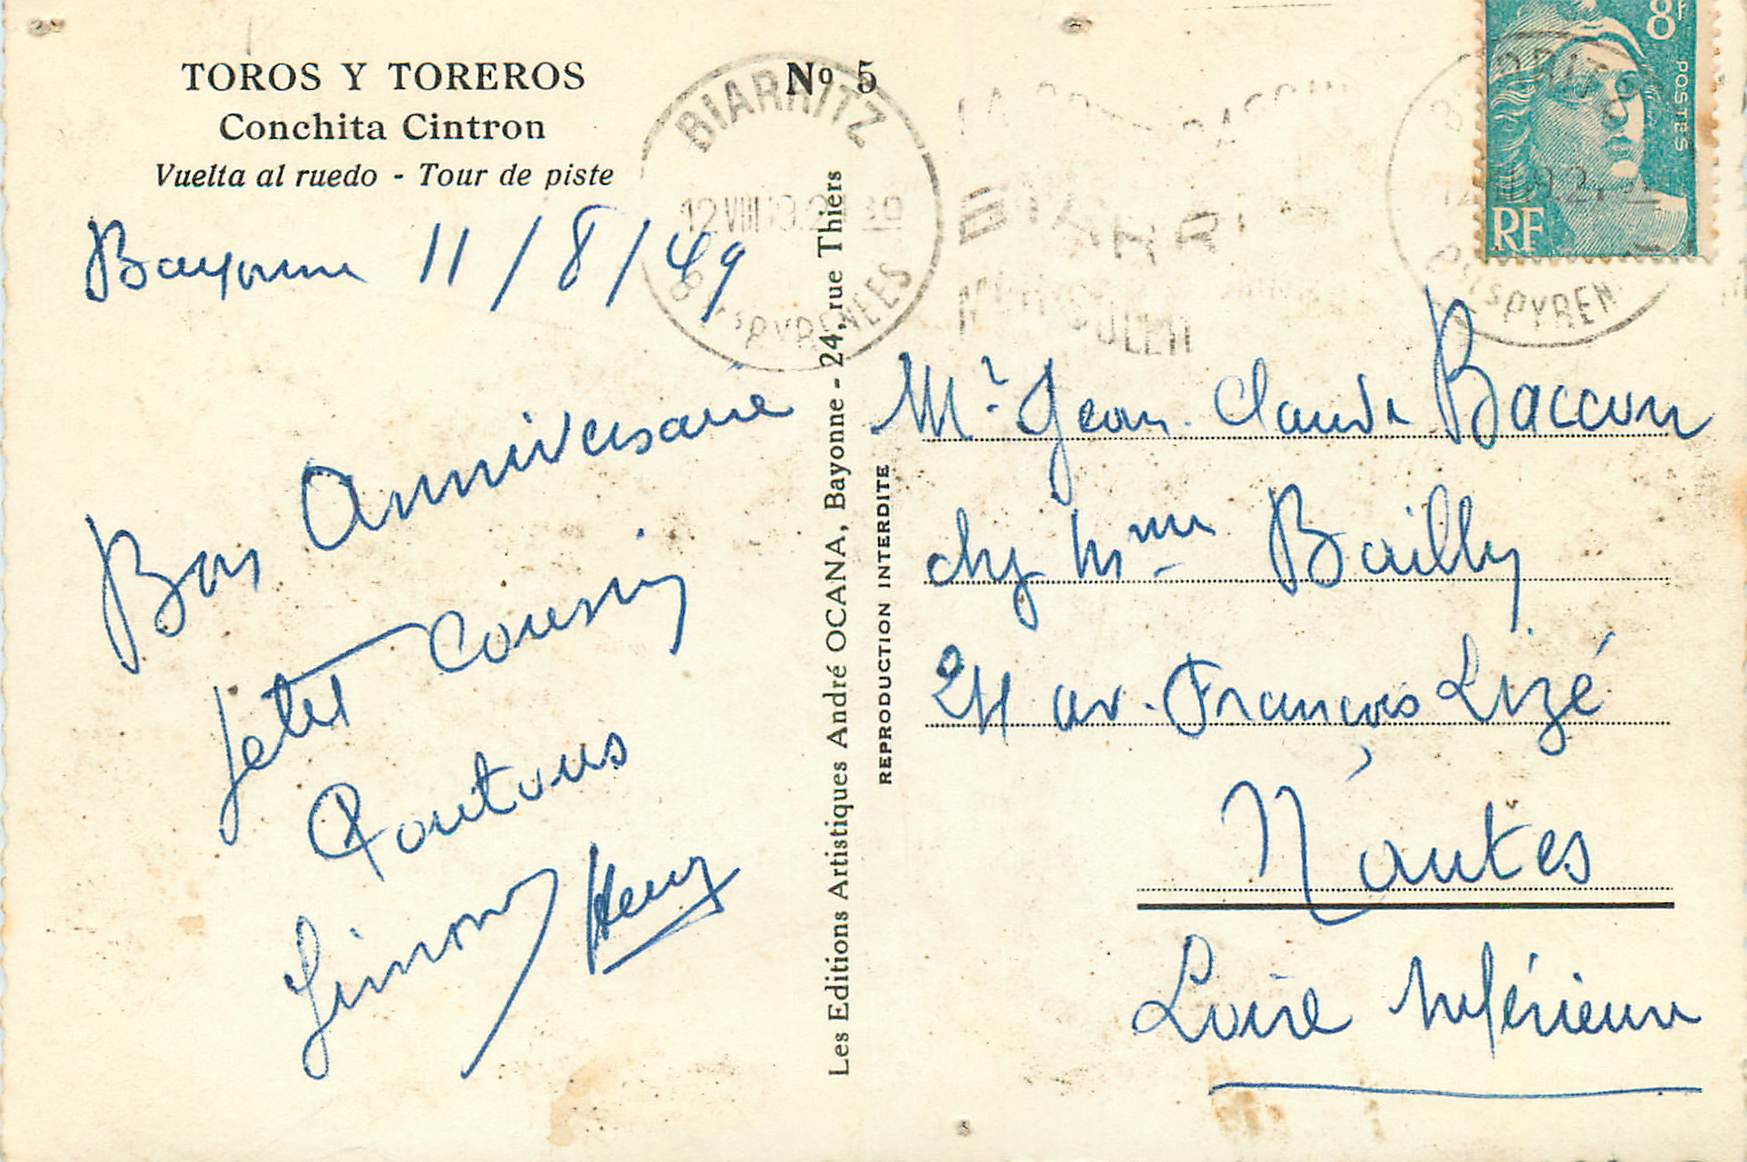 TOROS Y TOREROS
Nº 5
Conchita Cintron
Vuelta al ruedo - Tour de piste
Bayonne 11/8/49
Bon Anniversaire
petit cousin
Simone Henry
Les Editions Artistiques André OCANA, Bayonne - 24, rue Thiers
REPRODUCTION INTERDITE
BIARRITZ
12 VIII
BSES PYRENEES
8F
POSTES
RF
Mr Jean-Claude Baccon
chez Mme Bailly
24 av. François Lizé
Nantes
Loire Inférieure